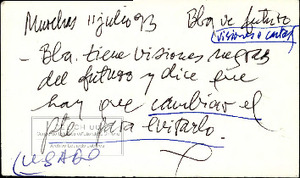 Muschas 11 julio 93 Bla ve futuro
(visiones o cartas)
- Bla. tiene visiones negras
del futuro y dice que
hay que cambiar el
pte para evitarlo.
(USADO